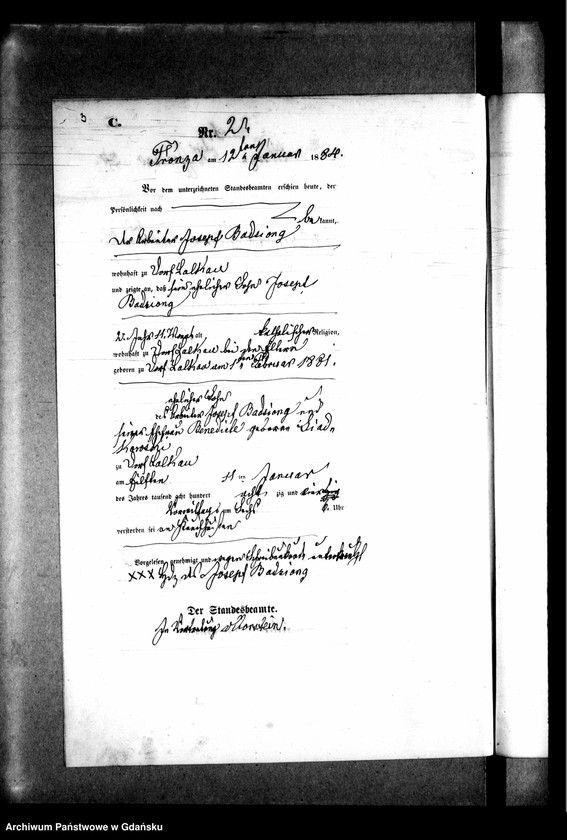 3
C.
Nr. 2.
Fronza am 12ten Januar 1884.
Vor dem unterzeichneten Standesbeamten erschien heute, der
Persönlichkeit nach
bekannt,
Der Arbeiter Joseph Badziong
wohnhaft zu Dorf Lalkau
und zeigte an, daß sein ehelicher Sohn Joseph
Badziong
2 Jahr 11 Monat alt katholischer Religion,
wohnhaft zu Dorf Lalkau bei den Eltern
geboren zu Dorf Lalkau am 1ten Februar 1881.
ehelicher Sohn
des Arbeiter Joseph Badziong und
seiner Ehefrau Benedicte geboren
zu Dorf Lalkau
am elften 11 ten Januar
des Jahres tausend acht hundert acht zig und vier
Vormittags um Sechs 6. Uhr
verstorben sei an
Vorgelesen, genehmigt und wegen Schreibunkunde unterkreuzt
XXX Hdz. des Joseph Badziong
Der Standesbeamte.
In Vertretung
Archiwum Państwowe w Gdańsku